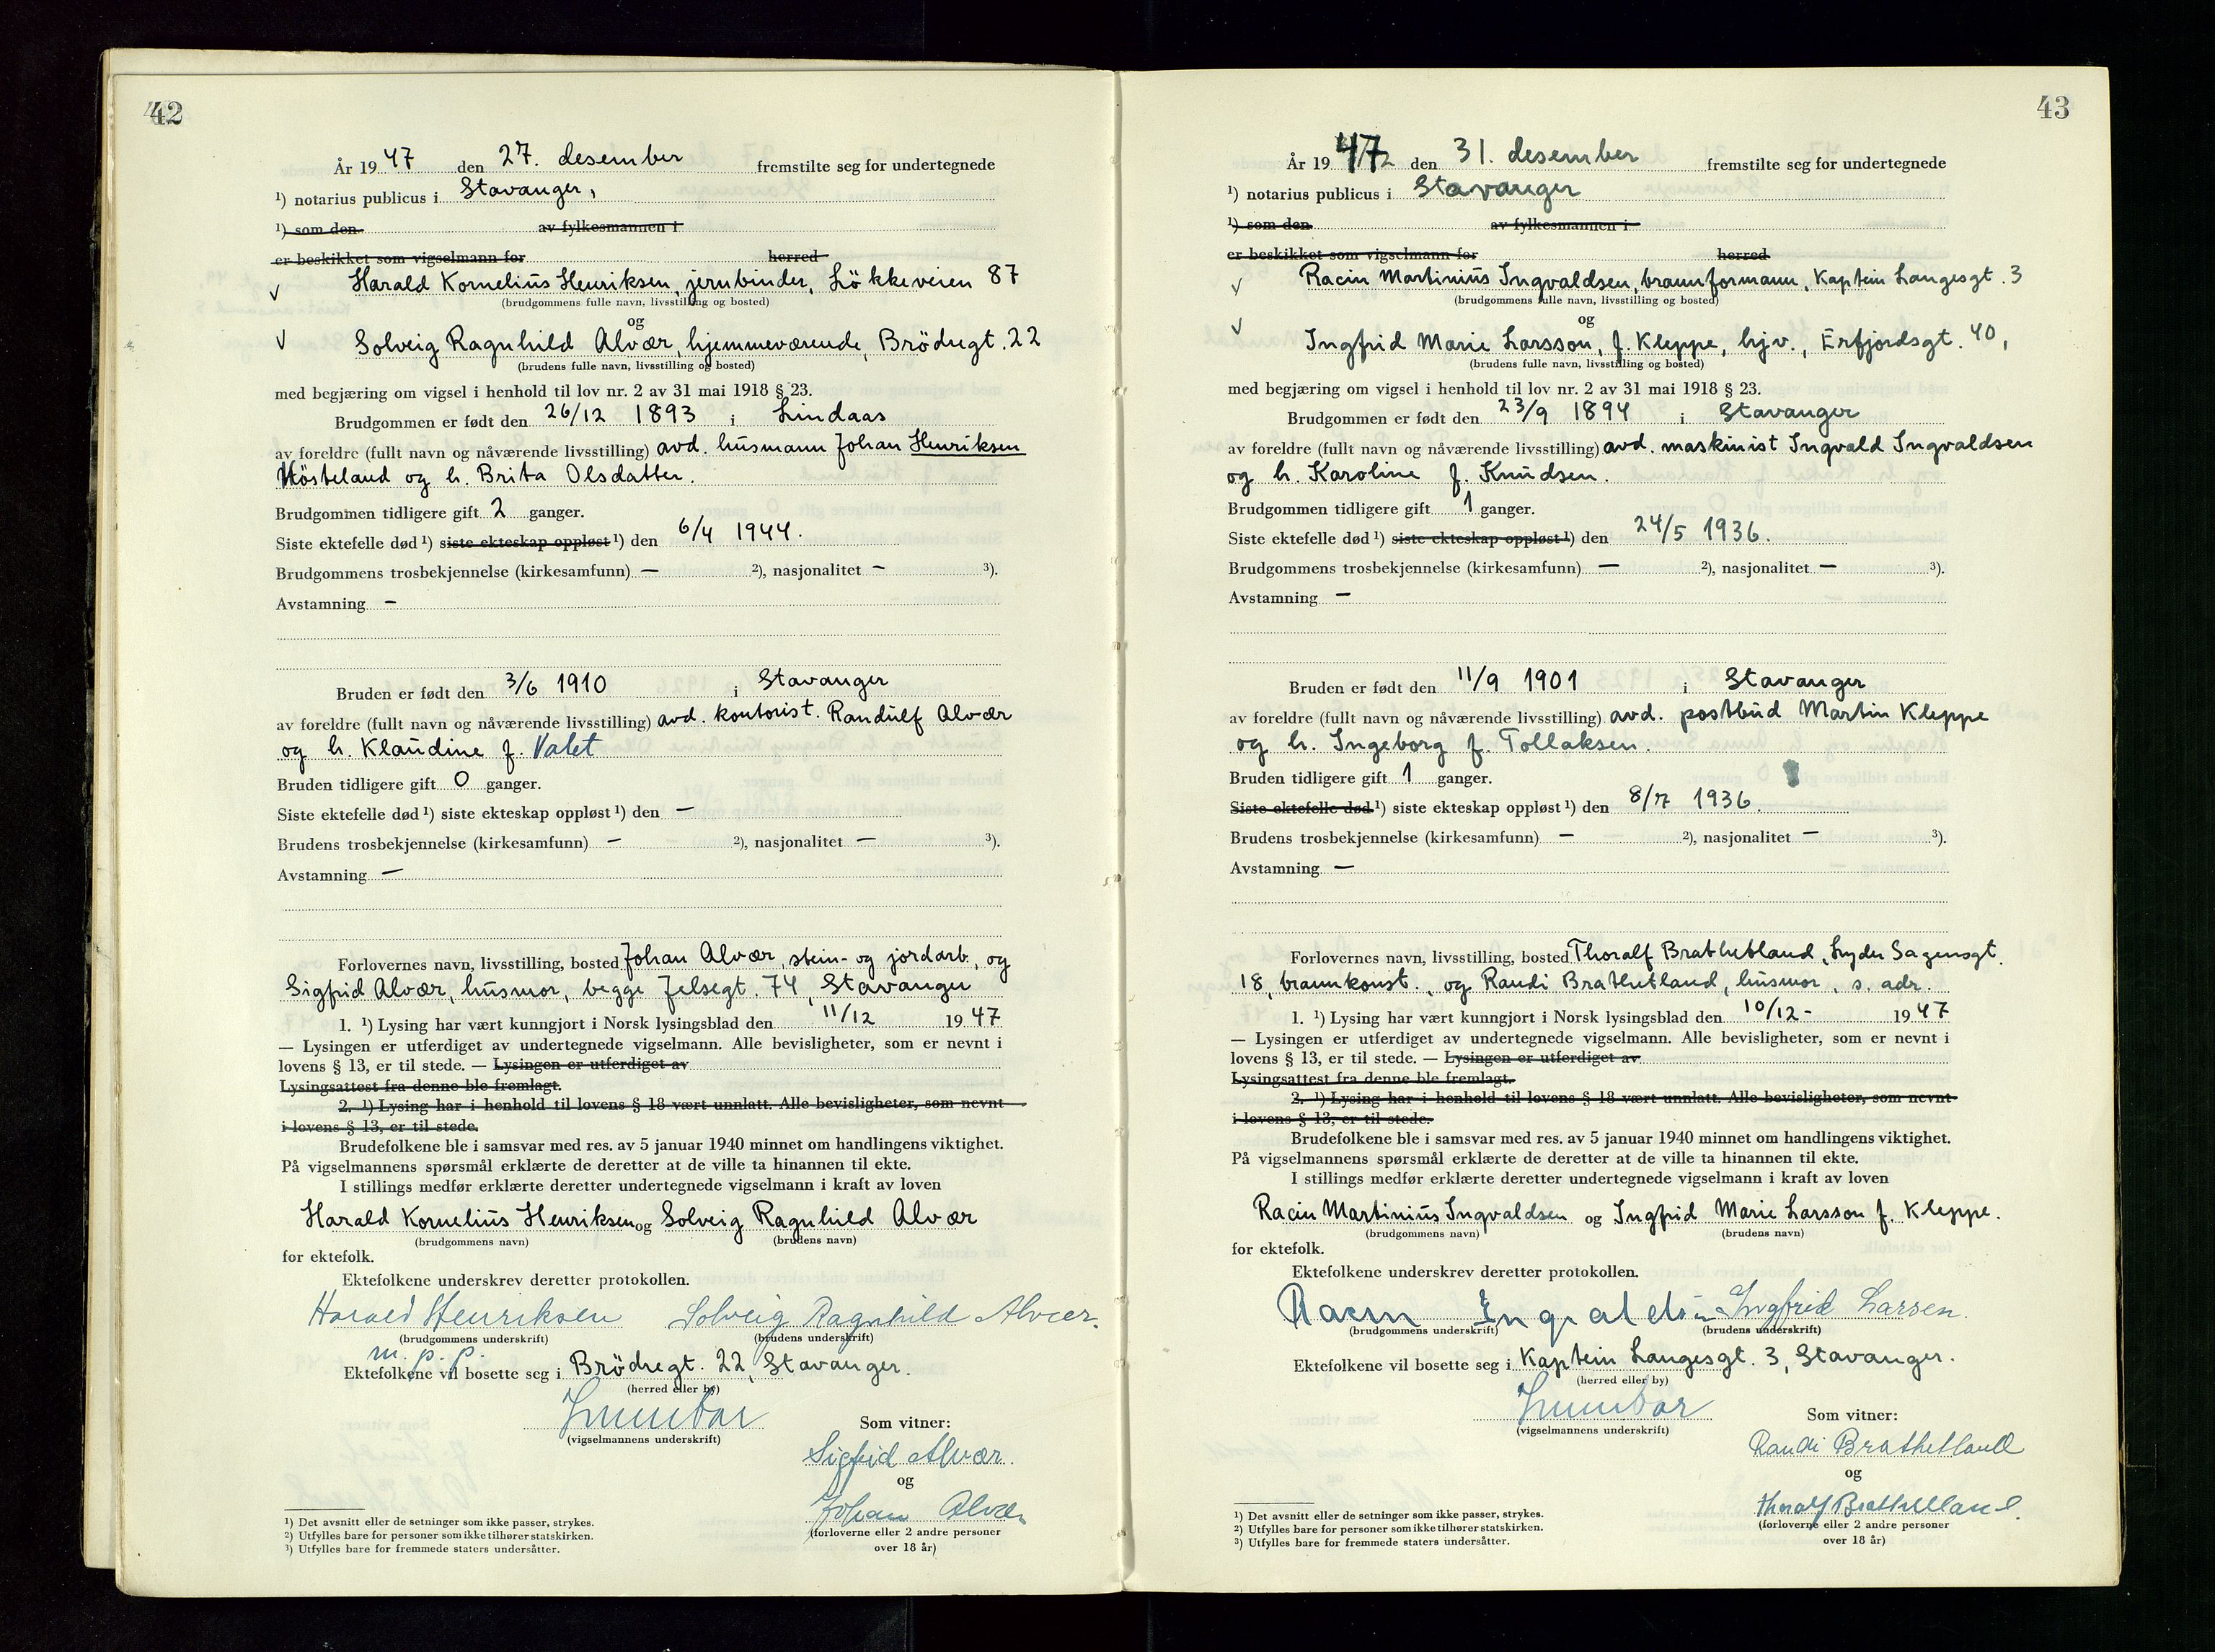 42
År 1947 den 27. desember fremstilte seg for undertegnede
¹) notarius publicus i Stavanger,
¹) som den av fylkesmannen i
er beskikket som vigselmann for herred
Harald Kornelius Henriksen, jernbinder, Lökkeveien 87
(brudgommens fulle navn, livsstilling og bosted)
og
Solveig Ragnhild Alvær, hjemmeværende, Brödregt. 22
(brudens fulle navn, livsstilling og bosted)
med begjæring om vigsel i henhold til lov nr. 2 av 31 mai 1918 § 23.
Brudgommen er født den 26/12 1893 i Lindaas
av foreldre (fullt navn og nåværende livsstilling) avd. husmann Johan Henriksen
Hösteland og h. Brita Olsdatter.
Brudgommen tidligere gift 2 ganger.
Siste ektefelle død ¹) siste ekteskap oppløst ¹) den 6/4 1944.
Brudgommens trosbekjennelse (kirkesamfunn) — ²), nasjonalitet — ³).
Avstamning —
Bruden er født den 3/6 1910 i Stavanger
av foreldre (fullt navn og nåværende livsstilling) avd. kontorist. Randulf Alvær
og h. Klaudine f. Valet
Bruden tidligere gift 0 ganger.
Siste ektefelle død ¹) siste ekteskap oppløst ¹) den —
Brudens trosbekjennelse (kirkesamfunn) — ²), nasjonalitet — ³).
Avstamning —
Forlovernes navn, livsstilling, bosted Johan Alvær, stein- og jordarb., og
Sigfrid Alvær, husmor, begge Jelsegt. 74, Stavanger
1. ¹) Lysing har vært kunngjort i Norsk lysingsblad den 11/12 1947
— Lysingen er utferdiget av undertegnede vigselmann. Alle bevisligheter, som er nevnt i
lovens § 13, er til stede. — Lysingen er utferdiget av
Lysingsattest fra denne ble fremlagt.
2. ¹) Lysing har i henhold til lovens § 18 vært unnlatt. Alle bevisligheter, som nevnt
i lovens § 13, er til stede.
Brudefolkene ble i samsvar med res. av 5 januar 1940 minnet om handlingens viktighet.
På vigselmannens spørsmål erklærte de deretter at de ville ta hinannen til ekte.
I stillings medfør erklærte deretter undertegnede vigselmann i kraft av loven
Harald Kornelius Henriksen og Solveig Ragnhild Alvær
(brudgommens navn) (brudens navn)
for ektefolk.
Ektefolkene underskrev deretter protokollen.
Harald Henriksen Solveig Ragnhild Alvær.
(brudgommens underskrift) (brudens underskrift)
m. p. p.
Ektefolkene vil bosette seg i Brödregt. 22, Stavanger.
(herred eller by)
(vigselmannens underskrift)
Som vitner:
Sigfrid Alvær.
og
Johan Alvær
(forloverne eller 2 andre personer
over 18 år)
¹) Det avsnitt eller de setninger som ikke passer, strykes.
²) Utfylles bare for personer som ikke tilhører statskirken.
³) Utfylles bare for fremmede staters undersåtter.
43
År 1947 den 31. desember fremstilte seg for undertegnede
¹) notarius publicus i Stavanger
¹) som den av fylkesmannen i
er beskikket som vigselmann for herred
Racin Martinius Ingvaldsen, brannformann, Kaptein Langesgt. 3
(brudgommens fulle navn, livsstilling og bosted)
og
Ingfrid Marie Larsson, f. Kleppe, hjv., Erfjordsgt. 40,
(brudens fulle navn, livsstilling og bosted)
med begjæring om vigsel i henhold til lov nr. 2 av 31 mai 1918 § 23.
Brudgommen er født den 23/9 1894 i Stavanger
av foreldre (fullt navn og nåværende livsstilling) avd. maskinist Ingvald Ingvaldsen
og h. Karoline f. Knudsen.
Brudgommen tidligere gift 1 ganger.
Siste ektefelle død ¹) siste ekteskap oppløst ¹) den 24/5 1936.
Brudgommens trosbekjennelse (kirkesamfunn) — ²), nasjonalitet — ³).
Avstamning —
Bruden er født den 11/9 1901 i Stavanger
av foreldre (fullt navn og nåværende livsstilling) avd. postbud Martin Kleppe
og h. Ingeborg f. Tollaksen.
Bruden tidligere gift 1 ganger.
Siste ektefelle død ¹) siste ekteskap oppløst ¹) den 8/7 1936.
Brudens trosbekjennelse (kirkesamfunn) — ²), nasjonalitet — ³).
Avstamning —
Forlovernes navn, livsstilling, bosted Thoralf Brathetland, Lyder Sagensgt.
18, brannkonst., og Randi Brathetland, husmor, s. adr.
1. ¹) Lysing har vært kunngjort i Norsk lysingsblad den 10/12 - 1947
— Lysingen er utferdiget av undertegnede vigselmann. Alle bevisligheter, som er nevnt i
lovens § 13, er til stede. — Lysingen er utferdiget av
Lysingsattest fra denne ble fremlagt.
2. ¹) Lysing har i henhold til lovens § 18 vært unnlatt. Alle bevisligheter, som nevnt
i lovens § 13, er til stede.
Brudefolkene ble i samsvar med res. av 5 januar 1940 minnet om handlingens viktighet.
På vigselmannens spørsmål erklærte de deretter at de ville ta hinannen til ekte.
I stillings medfør erklærte deretter undertegnede vigselmann i kraft av loven
Racin Martinius Ingvaldsen og Ingfrid Marie Larsson f. Kleppe.
(brudgommens navn) (brudens navn)
for ektefolk.
Ektefolkene underskrev deretter protokollen.
Racin Ingvaldsen Ingfrid Larsen.
(brudgommens underskrift) (brudens underskrift)
Ektefolkene vil bosette seg i Kaptein Langesgt. 3, Stavanger.
(herred eller by)
(vigselmannens underskrift)
Som vitner:
Randi Brathetland
og
Thoralf Brathetland.
(forloverne eller 2 andre personer
over 18 år)
¹) Det avsnitt eller de setninger som ikke passer, strykes.
²) Utfylles bare for personer som ikke tilhører statskirken.
³) Utfylles bare for fremmede staters undersåtter.